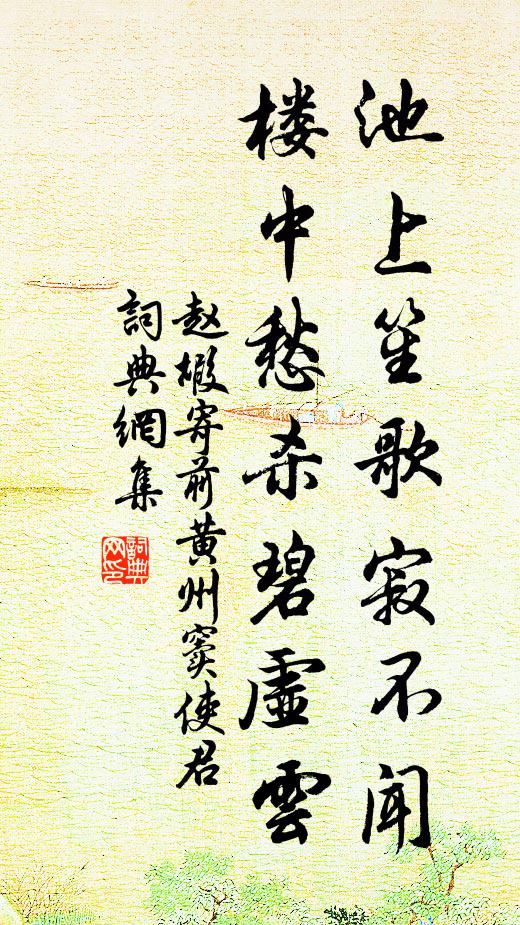 池上笙歌寂不闻
楼中愁杀碧虚雲
赵嘏寄前黄州窦使君
詞典網集
詞典网印